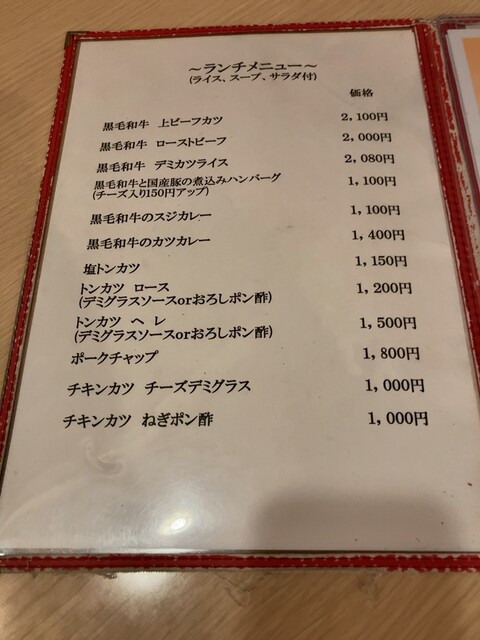 ～ランチメニュー～
(ライス、スープ、サラダ付)
価格
黒毛和牛 上ビーフカツ 2,100円
黒毛和牛 ローストビーフ 2,000円
黒毛和牛 デミカツライス 2,080円
黒毛和牛と国産豚の煮込みハンバーグ 1,100円
(チーズ入り150円アップ)
黒毛和牛のスジカレー 1,100円
黒毛和牛のカツカレー 1,400円
塩トンカツ 1,150円
トンカツ ロース 1,200円
(デミグラスソースorおろしポン酢)
トンカツ ヘレ 1,500円
(デミグラスソースorおろしポン酢)
ポークチャップ 1,800円
チキンカツ チーズデミグラス 1,000円
チキンカツ ねぎポン酢 1,000円